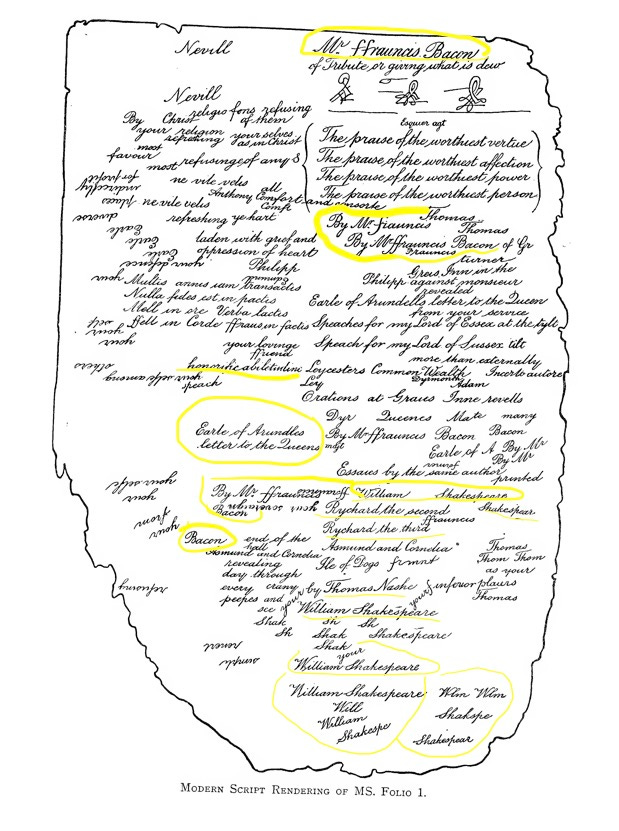 Nevill
Mr ffrauncis Bacon
of Tribute or giving what is dew
Nevill
religio fons refusing
By Christ of them
your religion
refreshing your selves
as in Christ
most
favour
most refusinge of any &
ne vile veles
all
Anthony Comfort and consorte
Comf
ne vile velis
refreshing ye hart
laden with grief and
oppression of heart
Esquier agt
The praise of the worthiest vertue
The praise of the worthiest affection
The praise of the worthiest power
The praise of the worthiest person
By Mr ffrauncis Thomas
Thomas
By Mr ffrauncis Bacon of Gr
ffrauncis
turner
Philipp
Greis Inn in the
Philipp against monsieur
revealed
Multis annis iam transactis
Nulla fides est in pactis
Mell in ore Verba lactis
ffell in Corde ffraus in factis
Earle of Arundells letter to the Queen
from your service
Speaches for my Lord of Essex at the tylt
your lovinge
ffriend
Speach for my Lord of Sussex tilt
more than externally
honorificabiletudini
Leycesters Common Wealth Incerto autore
Dyrmonth
Adam
speach
Ley
Orations at Graies Inne revells
Dyr Queenes Mate many
Earle of Arundles
letter to the Queens
By Mr ffrauncis Bacon Bacon
Earle of A By Mr
By Mr
Essaies by the same author
printed
your selfe
your
By Mr ffrauncis
Bacon
William Shakespeare
Rychard the second Shakespear
ffrauncis
Rychard the third
from
your
Bacon
end of the
hall
Asmund and Cornelia
Asmund and Cornelia
Thomas
revealing
Ile of Dogs frmnt
Thom Thom
as your
day through
every crany
by Thomas Nashe & inferior plaiers
peepes and
see
your
your
Thomas
William Shakespeare
Shak Sh Sh
Sh Shak Shakespeare
Shak
your
William Shakespeare
William Shakespeare
Will
William
Shakespe
Wlm Wlm
Shakspe
Shakespear
Modern Script Rendering of MS. Folio 1.